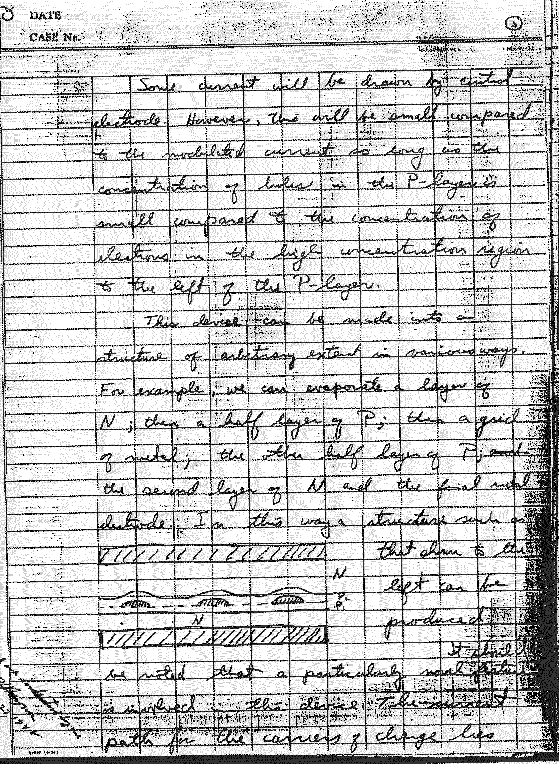 DATE
CASE No.
Some current will be drawn by control
electrode. However, this will be small compared
to the modulated current so long as the
concentration of holes in the P-layer is
small compared to the concentration of
electrons in the high concentration region
to the left of the P-layer.
This device can be made into a
structure of arbitrary extent in various ways.
For example, we can evaporate a layer of
N; then a half layer of P; then a grid
of metal; the other half layer of P; and
the second layer of N and the final metal
electrode. In this way a structure such as
that shown to the
N
left can be
P
P
N
produced
It should
be noted that a particularly novel feature
is involved in this device. The current
path for the carriers of charge lies